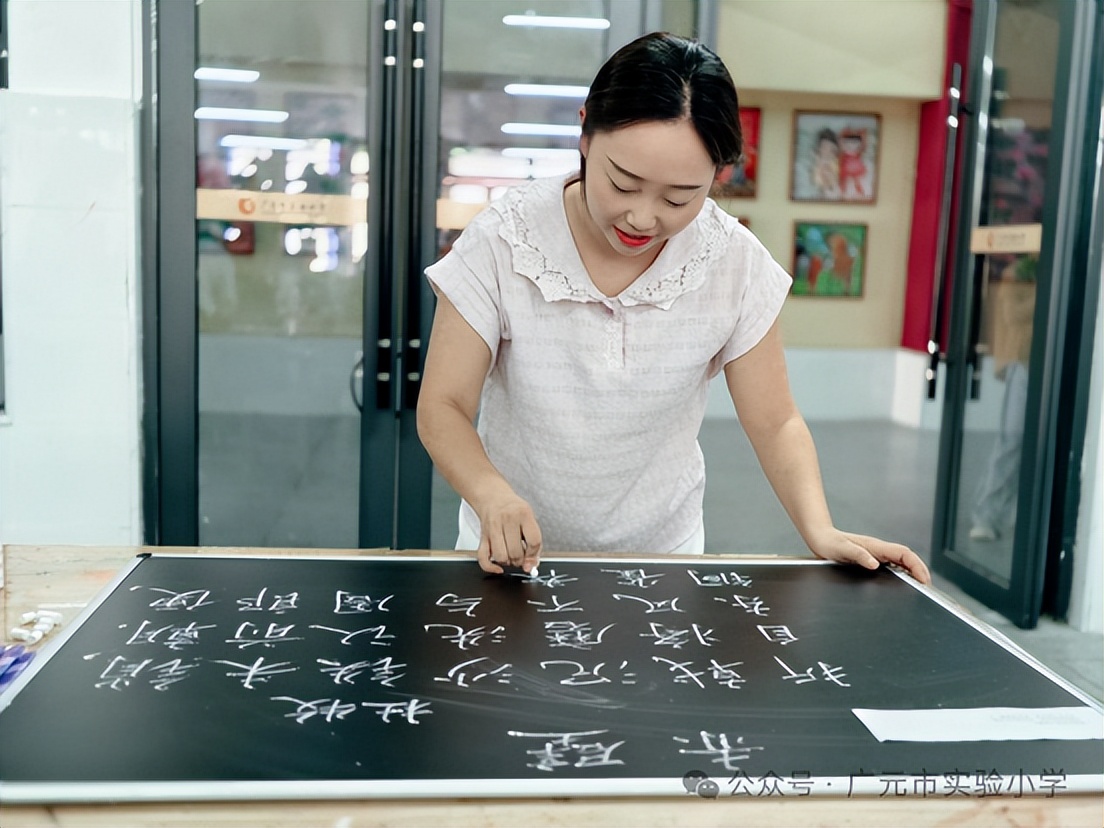 赤壁
杜牧
折戟沉沙铁未销,
自将磨洗认前朝.
东风不与周郎便,
铜雀春
公众号 · 广元市实验小学